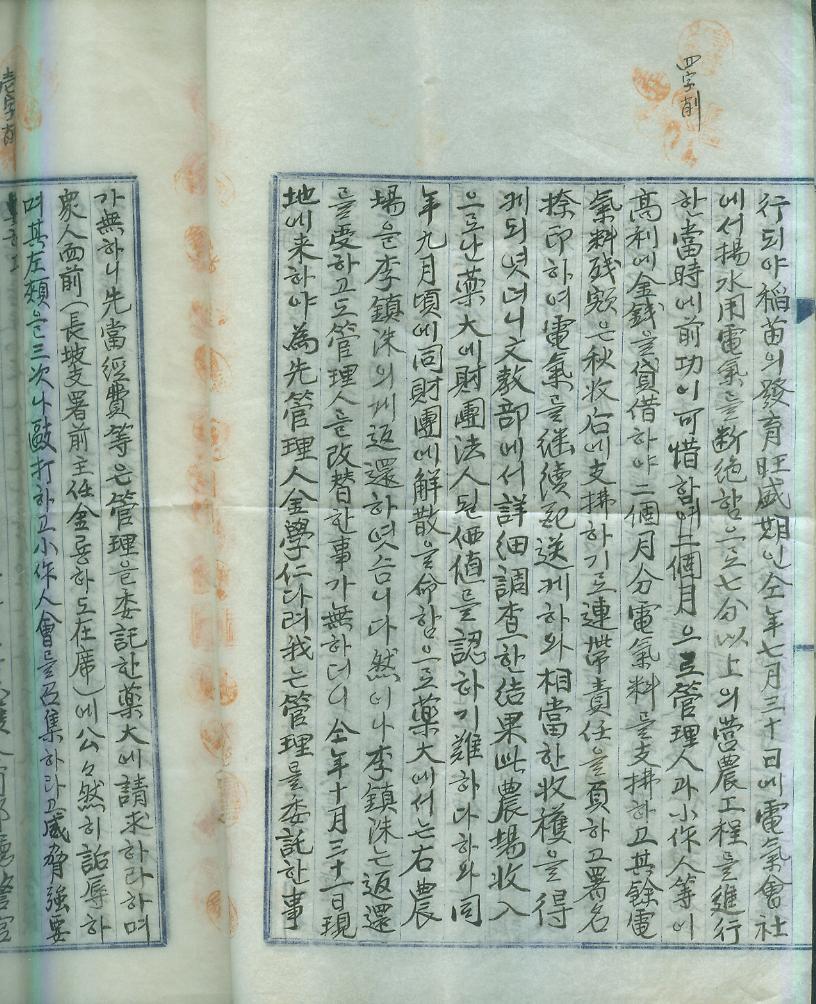 四字削
行되야 稻苗의 發育旺盛期인 仝年七月三十日에 電氣會社
에서 揚水用電氣를 斷絶함으로 七分以上의 營農工程을 進行
한 當時에 前功이 可惜함에 二個月으로 管理人과 小作人等이
高利에 金錢을 貸借하야 二個月分 電氣料를 支拂하고 其餘電
氣料殘額은 秋收后에 支拂하기로 連帶責任을 負하고 署名
捺印하여 電氣를 継續配送케하와 相當한 收穫을 得
케되엿더니 文敎部에서 詳細調査한 結果 此農場收入
으로난 藥大에 財團法人될 価値를 認하기 難하다 하와 同
年九月頃에 同財團에 解散을 命함으로 藥大에서는 右農
場을 李鎮洙의게 返還하엿슴니다 然이나 李鎮洙는 返還
를 受하고도 管理人를 改替한 事가 無하더니 仝年十月三十一日 現
地에 来하야 為先 管理人 金學仁다려 我는 管理를 委託한 事
가 無하니 先當 經費等은 管理을 委託한 藥大에 請求하라하며
衆人面前(長坡支署前主任 金 하도 在席)에 公々然히 詬辱하
며 其左頰을 三次나 敲打하고 小作人會를 召集하라고 威脅強要
壱字削